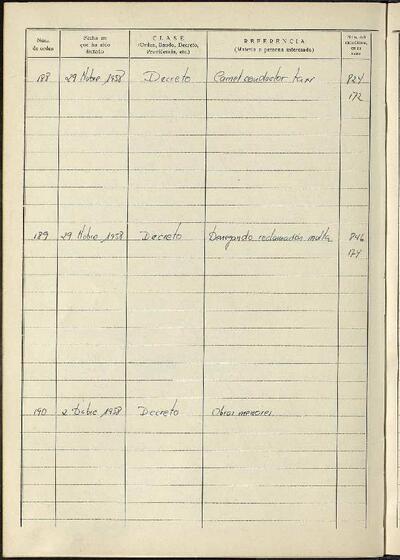 Núm. de orden | Fecha en que ha sido dictado | CLASE (Orden, Bando, Decreto, Providencia, etc.) | REFERENCIA (Materia o persona interesada)
188 | 29 Nbre, 1958 | Decreto | Carnet conductor taxi | 824
172
189 | 29 Nbre, 1958 | Decreto | Denegando reclamación multa | 846
174
190 | 2 Dicbre, 1958 | Decreto | Obras menores